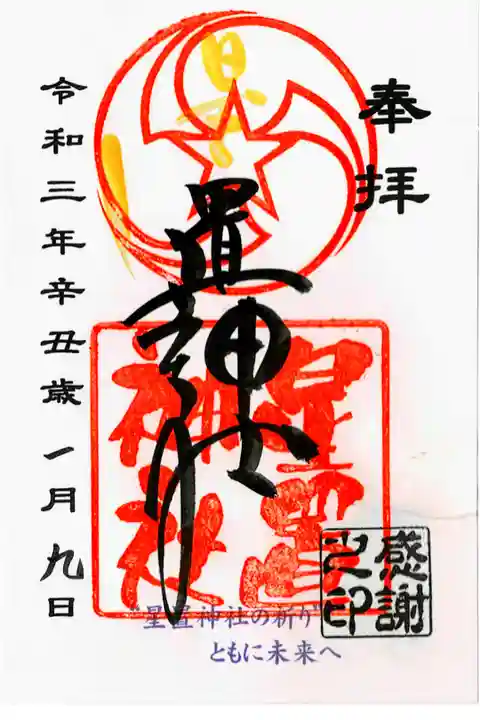 奉拝
星置神社
星置神社
令和三年辛丑歳 一月九日
感謝之印
"星置神社の祈り"
ともに未来へ